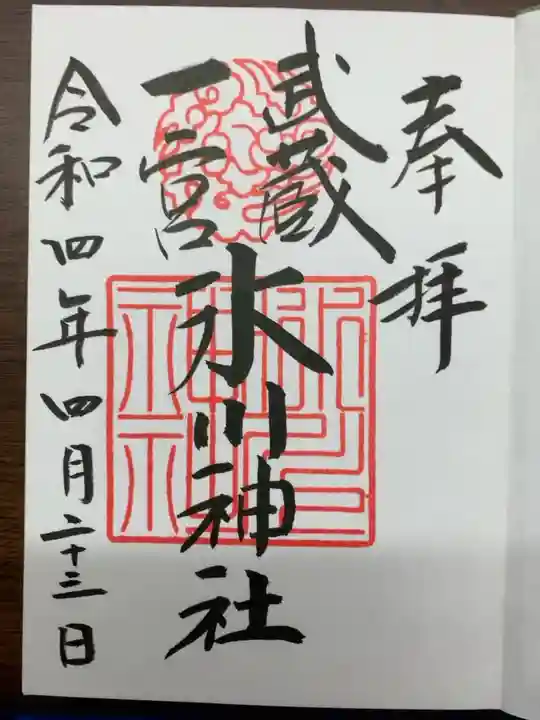 奉拝
武蔵
一宮
氷川神社
令和四年四月二十三日